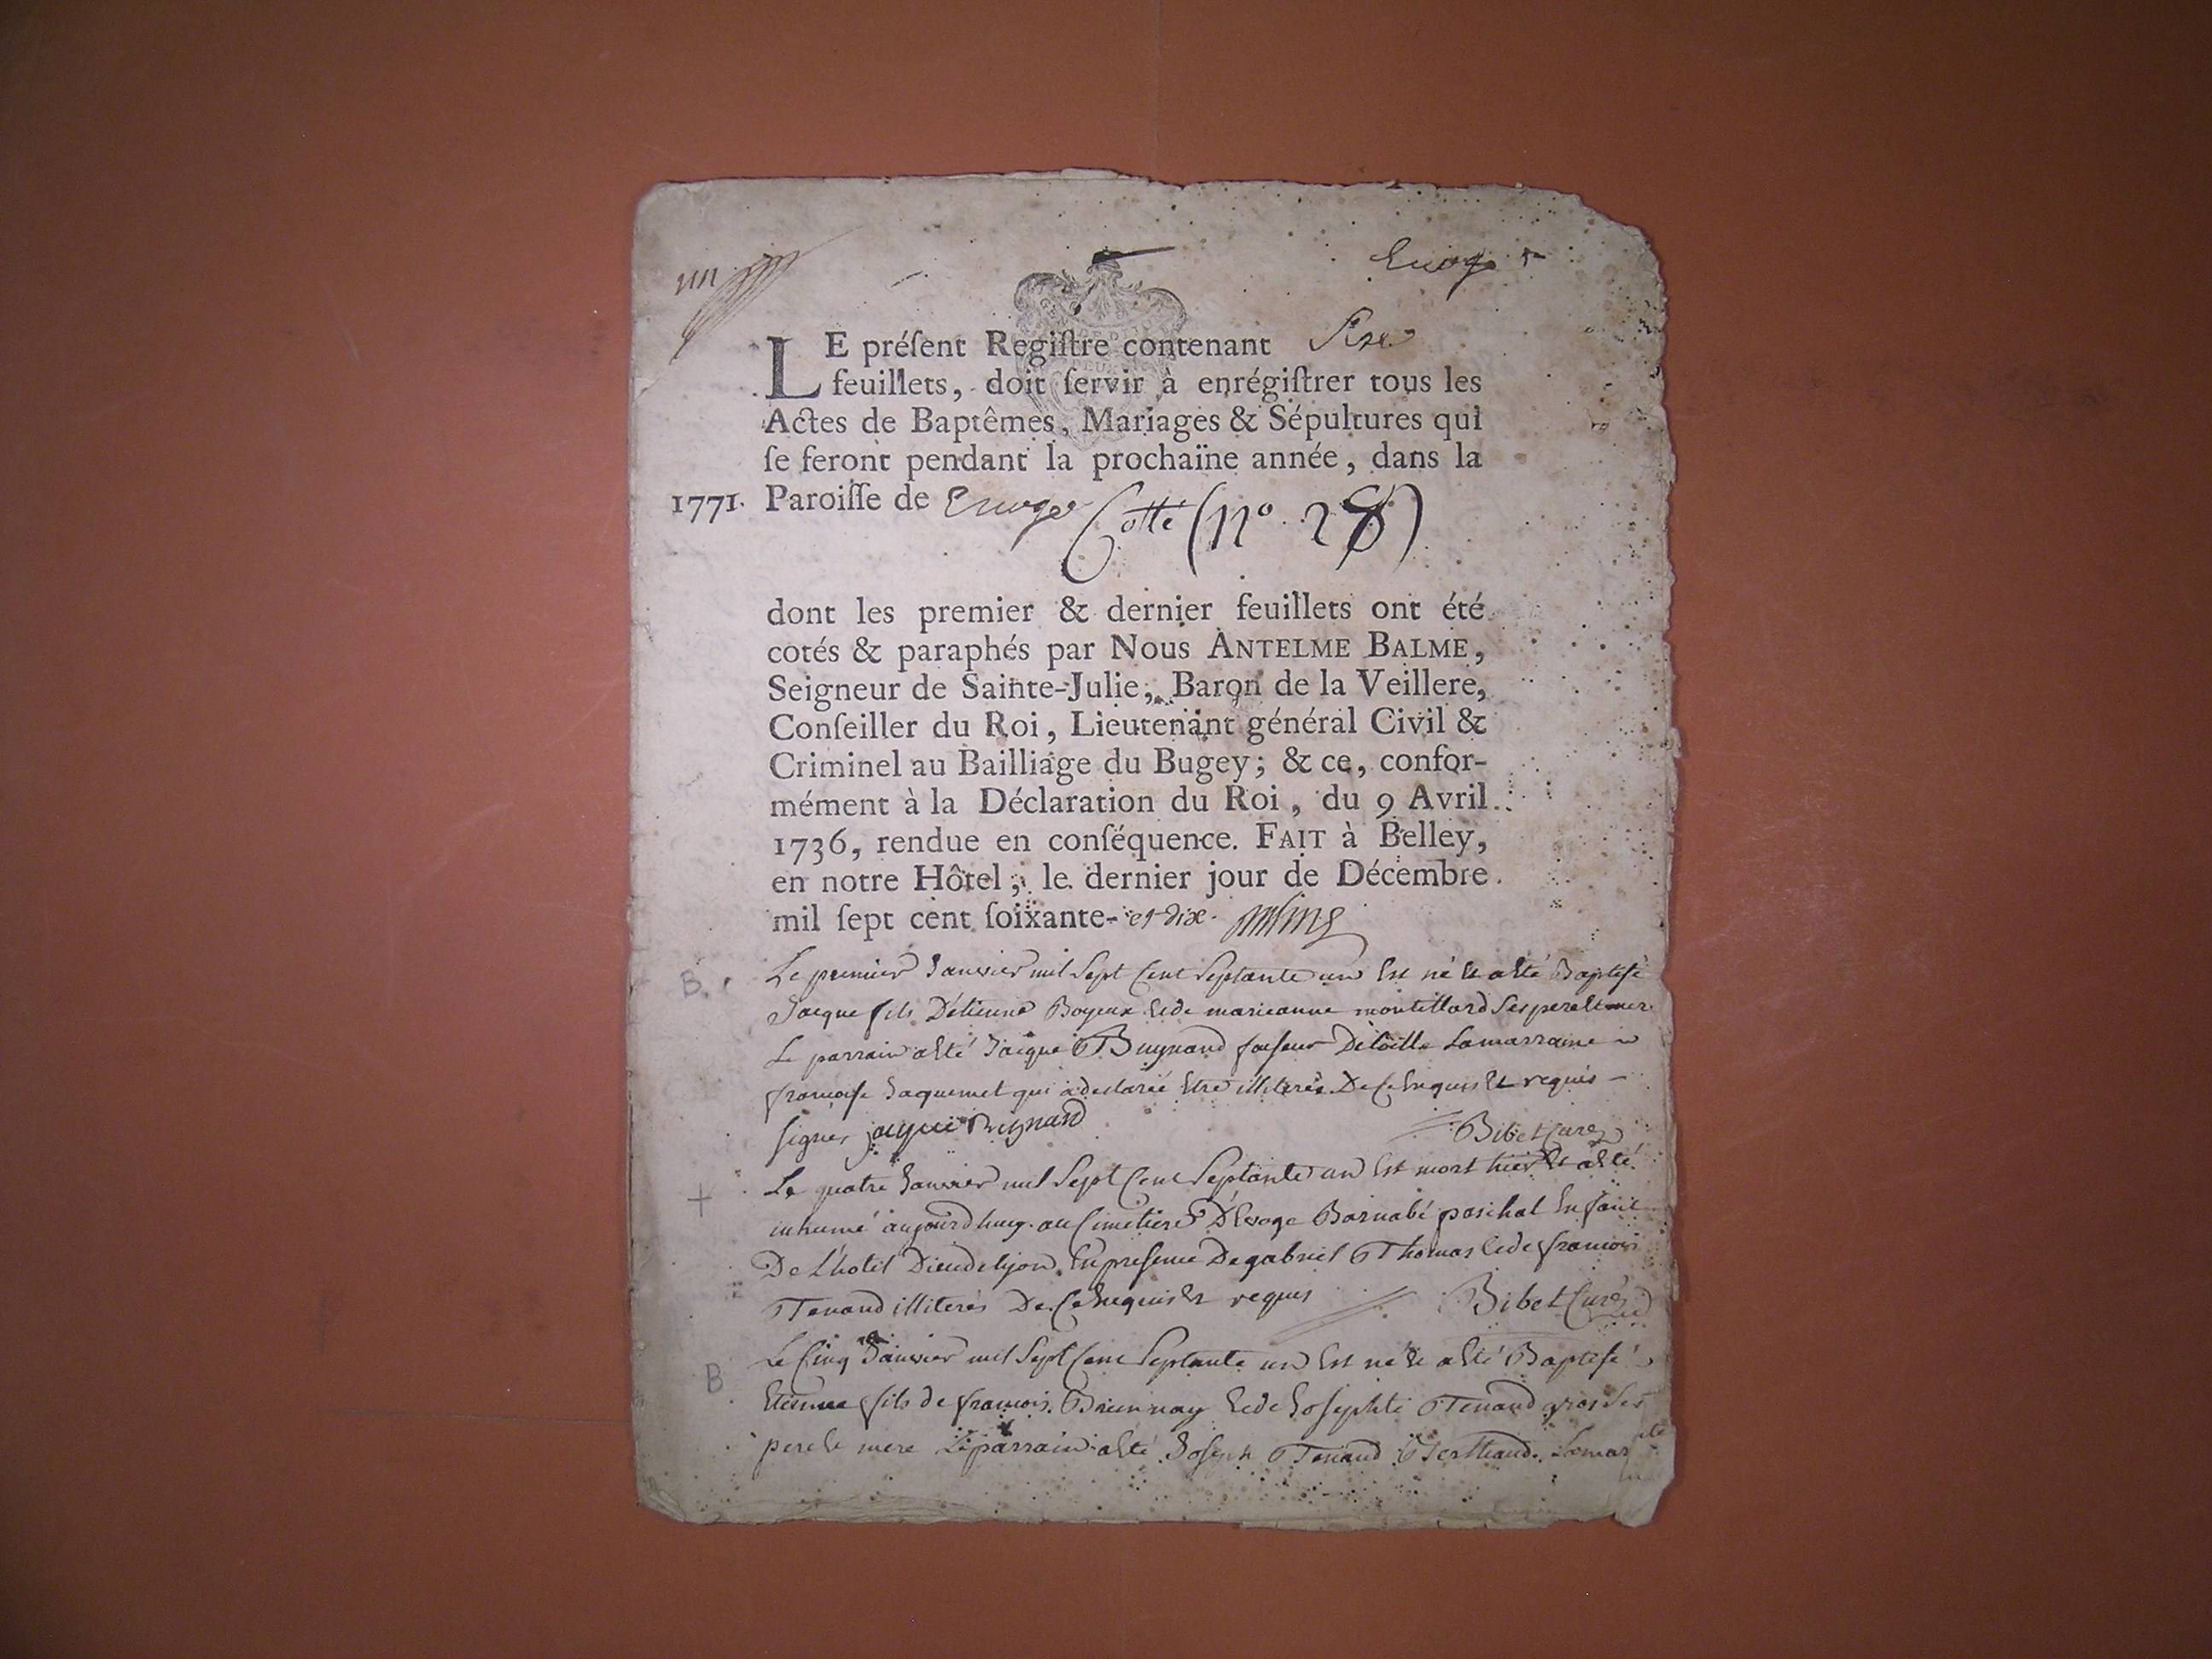 un
Evoge
LE préſent Regiſtre contenant Six
feuillets, doit ſervir à enrégiſtrer tous les
Actes de Baptêmes, Mariages & Sépultures qui
ſe feront pendant la prochaine année, dans la
1771. Paroiſſe de Evoge Cotté (n° 28)
dont les premier & dernier feuillets ont été
cotés & paraphés par Nous ANTELME BALME,
Seigneur de Sainte-Julie, Baron de la Veillere,
Conſeiller du Roi, Lieutenant général Civil &
Criminel au Bailliage du Bugey; & ce, confor-
mément à la Déclaration du Roi, du 9 Avril
1736, rendue en conſéquence. FAIT à Belley,
en notre Hôtel, le dernier jour de Décembre
mil ſept cent ſoixante- et dix.
B. Le premier Janvier mil Sept Cent Septante un Est né Et a Eté Baptisé
Jacque fils D'étienne Boyeux Et de marieanne montillard Ses pere Et mere
Le parrain a Eté Jacque Buynand faiseur De toille La marraine
francoise Jaquemet qui a declaréé Etre illiterée De Ce Enquis Et requis
signer jacque Buynand Bibet Curé
+ Le quatre Janvier mil Sept Cent Septante un Est mort hier Et a Eté
inhumé aujourdhuy au Cimetiere D'Evoge Barnabé paschal Enfant
De L'hotel Dieu de lyon En presence De gabriel Thomas Et de francois
Tenand illiterés De Ce Enquis Et requis Bibet Curé
B Le Cinq Janvier mil Sept Cent Septante un Est né Et a Eté Baptisé
Etienne fils de francois Et de Josephte Tenand Ses
pere Et mere Le parrain a Eté Joseph Tenand La mar